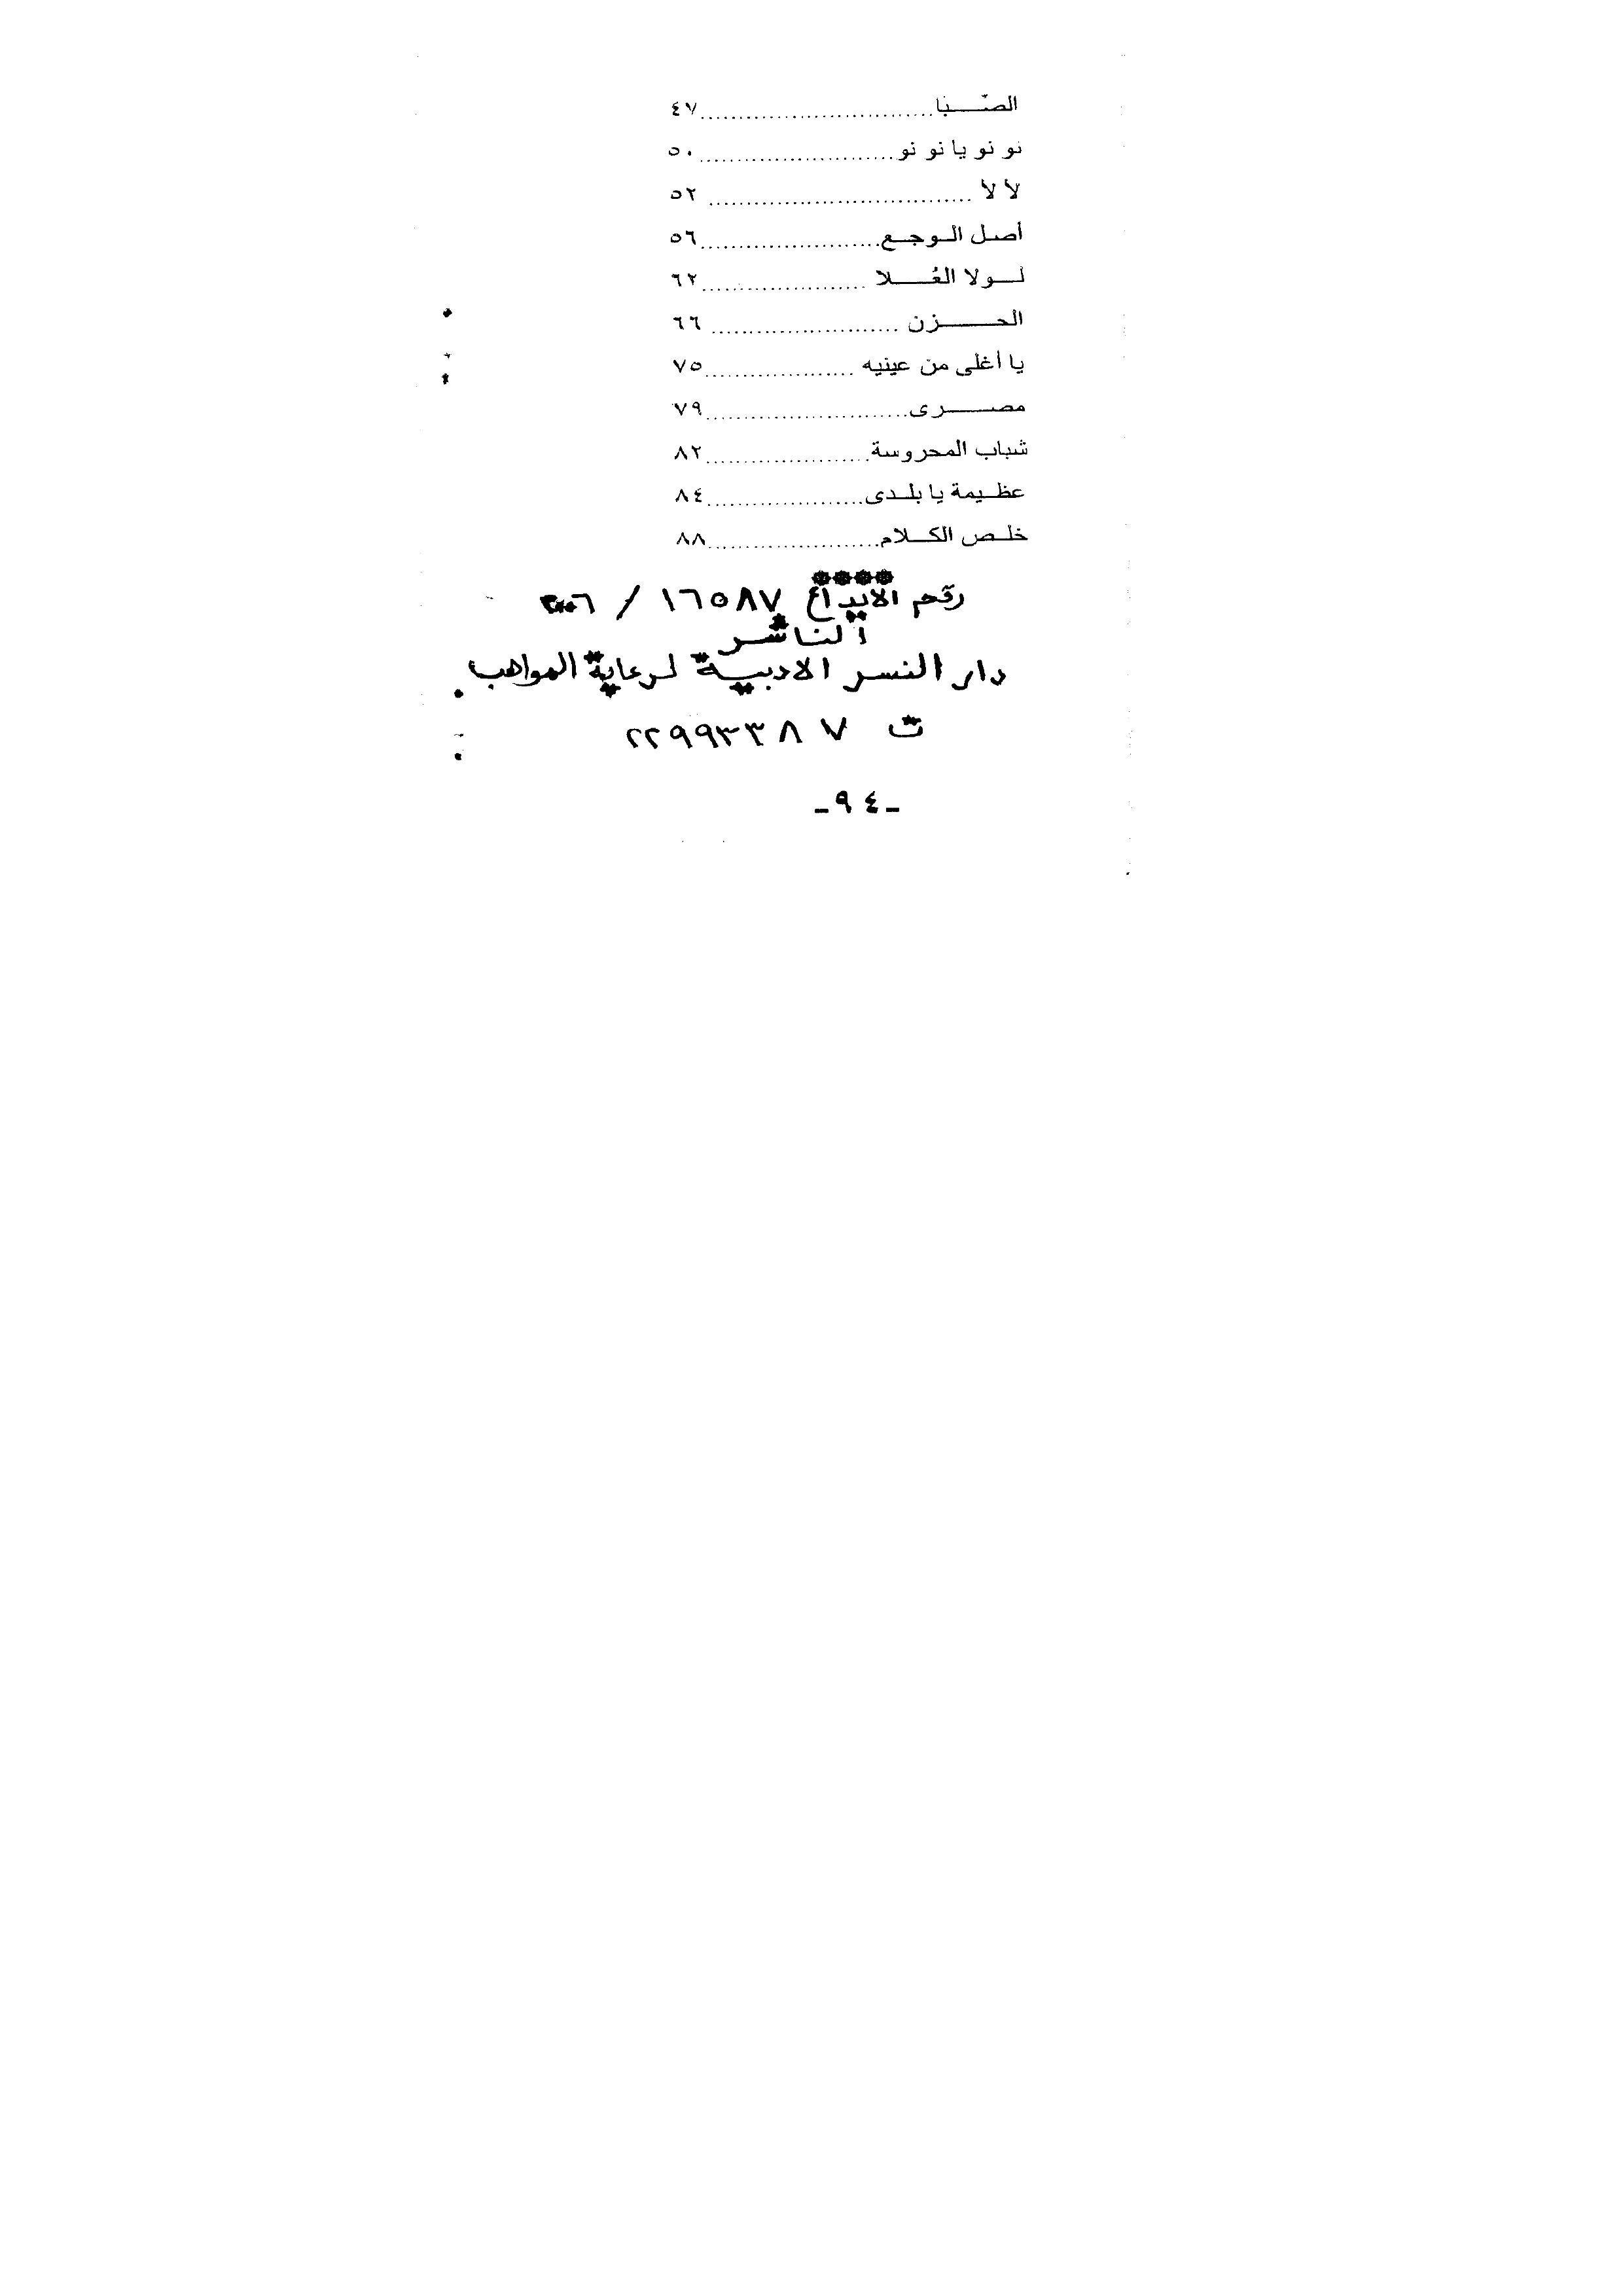 الصّبا..............................٤٧
نو نو يا نو نو..........................٥٠
لأ لأ ..................................٥٢
أصل الوجع........................٥٦
لولا العُلا ......................٦٢
الحزن .........................٦٦
يا أغلى من عينيه ....................٧٥
مصرى...........................٧٩
شباب المحروسة......................٨٢
عظيمة يا بلدى.....................٨٤
خلص الكلام.......................٨٨
****
رقم الايداع ١٦٥٨٧ / ٢٠٠٦
الناشر
دار النسر الادبية لرعاية المواهب
ت ٢٢٩٩٣٣٨٧
-٩٤-